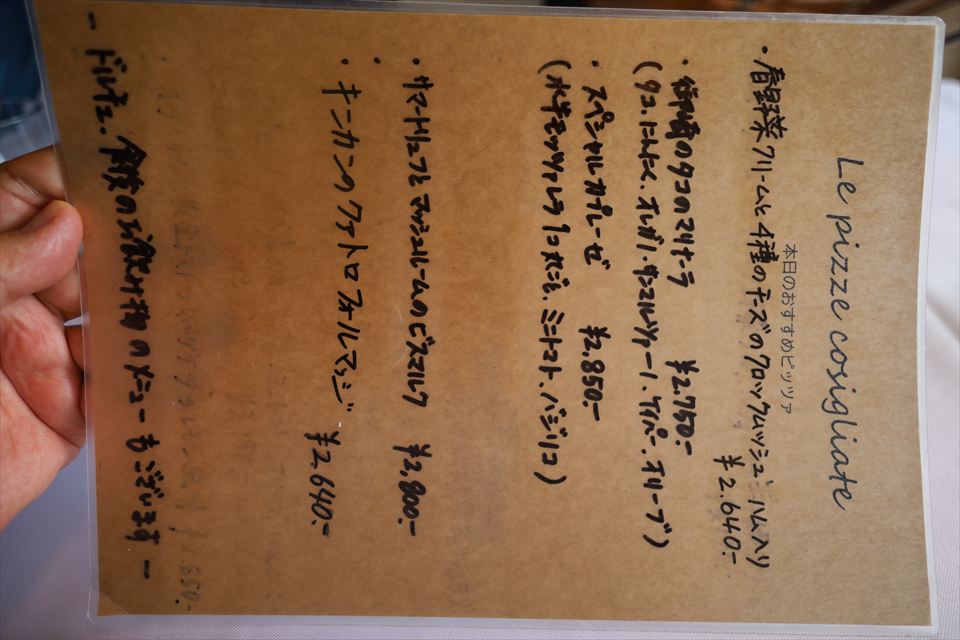 Le pizze cosigliate
本日のおすすめピッツァ
・春野菜クリームと4種のチーズのクロックムッシュ ハム入り
¥2.640.-
・御前崎のタコのマリナーラ ¥2.750.-
(タコ、にんにく、オレガノ、サンマルツァーノ、ケイパー、オリーブ)
・スペシャルカプレーゼ ¥2,850.-
(水牛モッツァレラ1コ丸ごと、ミニトマト、バジリコ)
・サマートリュフとマッシュルームのビスマルク ¥2,800.-
・キンカンのクァトロフォルマッジ ¥2,640.-
ー ドルチェ、食後のお飲み物のメニューもございます ー